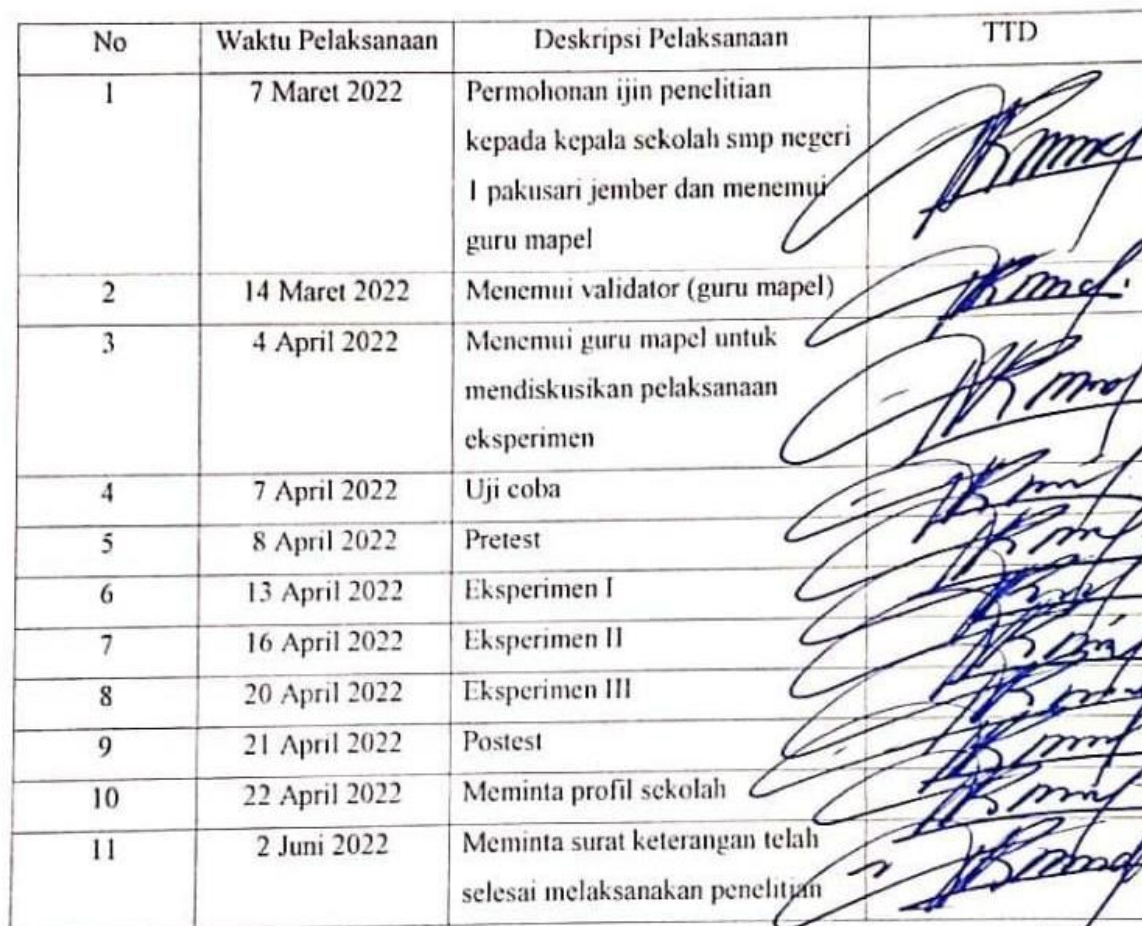 No Waktu Pelaksanaan Deskripsi Pelaksanaan TTD
1 7 Maret 2022 Permohonan ijin penelitian
kepada kepala sekolah smp negeri
1 pakusari jember dan menemui
guru mapel
2 14 Maret 2022 Menemui validator (guru mapel)
3 4 April 2022 Menemui guru mapel untuk
mendiskusikan pelaksanaan
eksperimen
4 7 April 2022 Uji coba
5 8 April 2022 Pretest
6 13 April 2022 Eksperimen I
7 16 April 2022 Eksperimen II
8 20 April 2022 Eksperimen III
9 21 April 2022 Postest
10 22 April 2022 Meminta profil sekolah
11 2 Juni 2022 Meminta surat keterangan telah
selesai melaksanakan penelitian